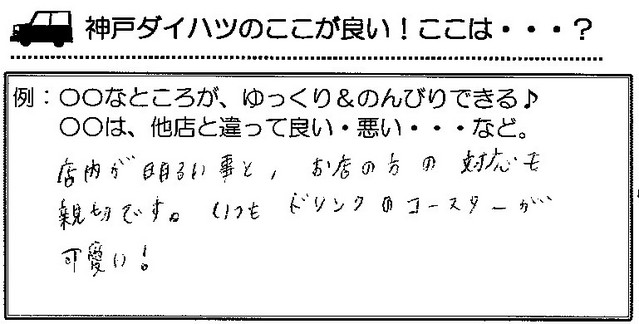 神戸ダイハツのここが良い！ここは・・・？
例：〇〇なところが、ゆっくり＆のんびりできる♪
〇〇は、他店と違って良い・悪い・・・など。
店内が明るい事と、お店の方の対応も
親切です。いつもドリンクのコースターが
可愛い！